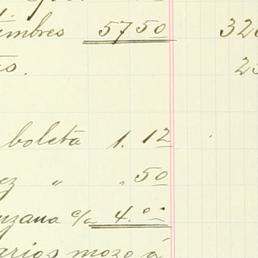 imbres 57 50 328
s. 23
boleta 1.12
ez " " 50
anzana c/a 4.00
arios mozo á